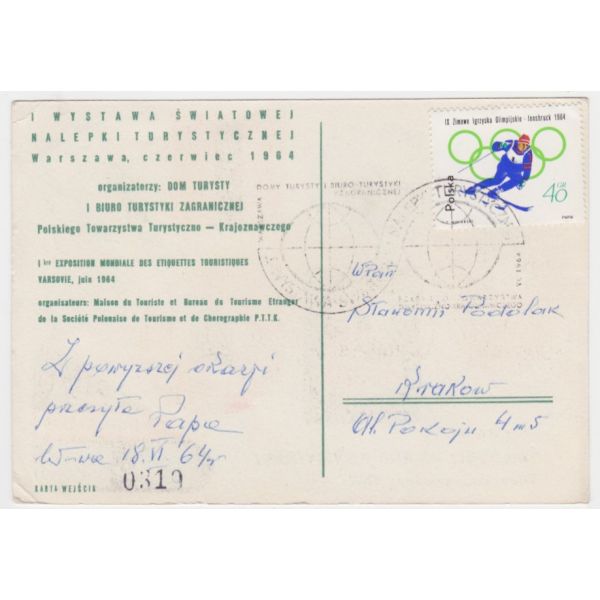 I WYSTAWA ŚWIATOWEJ
NALEPKI TURYSTYCZNEJ
Warszawa, czerwiec 1964
organizatorzy: DOM TURYSTY
I BIURO TURYSTYKI ZAGRANICZNEJ
Polskiego Towarzystwa Turystyczno – Krajoznawczego
I ère EXPOSITION MONDIALE DES ETIQUETTES TOURISTIQUES
VARSOVIE, juin 1964
organisateurs: Maison du Touriste et Bureau du Tourisme Etranger
de la Société Polonaise de Tourisme et de Chorographie P.T.T.K.
Z powyższej okazji
przesyła Papa
W-wa 18.VI.64r
0319
KARTA WEJŚCIA
IX Zimowe Igrzyska Olimpijskie - Innsbruck 1964
Polska
40 GR
PWPW
DOMY TURYSTY I BIURO TURYSTYKI
ZAGRANICZNEJ
WARSZAWA
VI. 1964
WPań
Sławomir Podolak
Kraków
Al. Pokoju 4 m 5